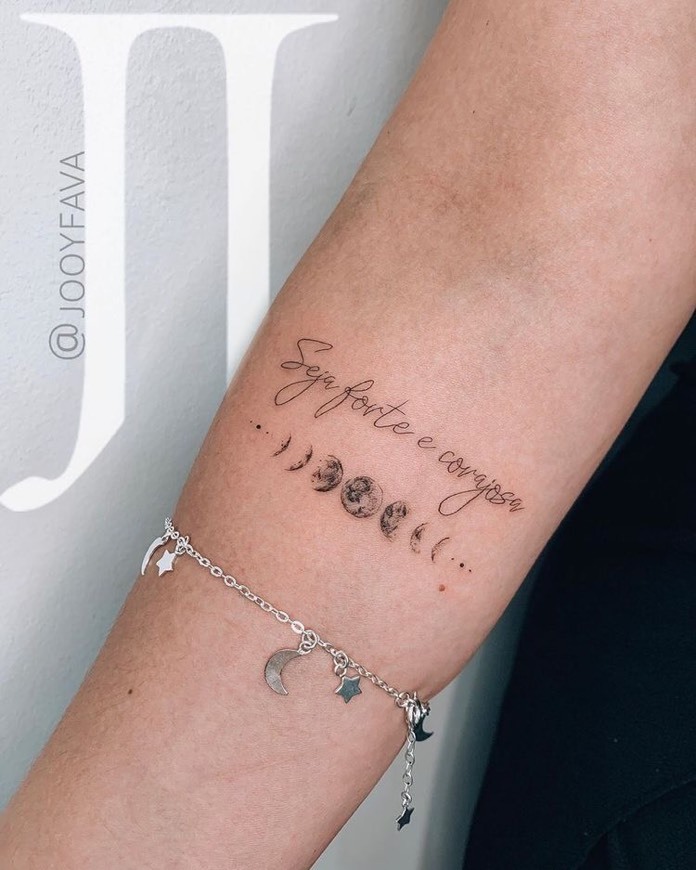 @JOOYFAVA
Seja forte e corajosa